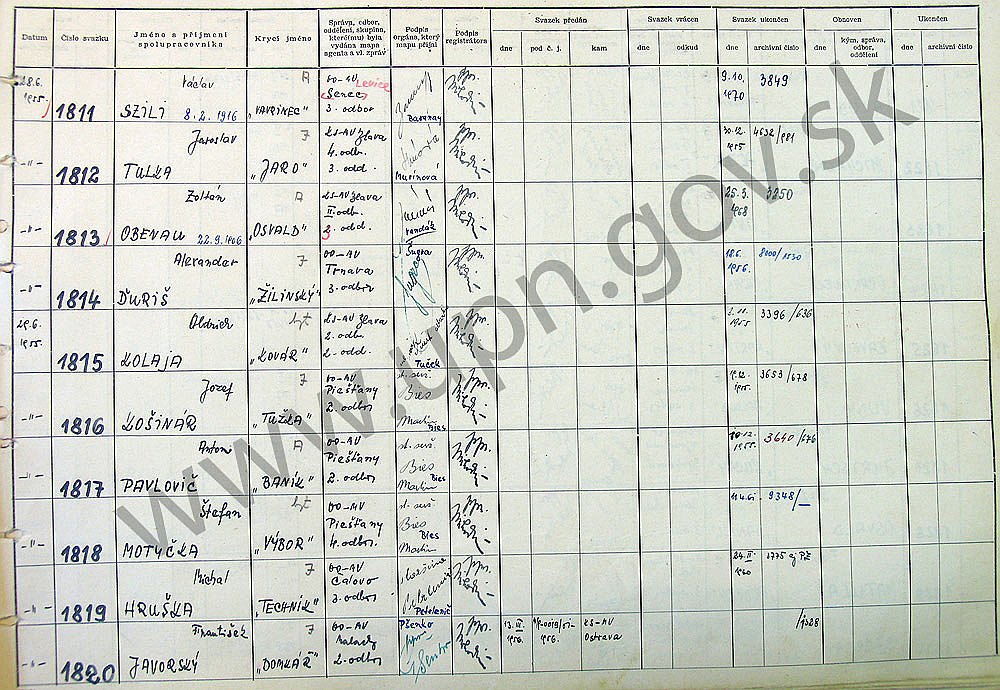 Datum
Číslo svazku
Jméno a příjmení spolupracovníka
Krycí jméno
Správa, odbor, oddělení, skupina, kterému byla vydána mapa agenta a vl. zpráv
Podpis orgána, který mapu přijal
Podpis registrátora
Svazek předán
dne
pod č. j.
kam
Svazek vrácen
dne
odkud
Svazek ukončen
dne
archivní číslo
Obnoven
dne
kým, správa, odbor, oddělení
Ukončen
dne
archivní číslo
28.6. 1955
1811
Václav
SZILI 8.2.1916
A
"VAVRINEC"
OO-AV Levice
Senec
3. odbor
Baranay
9.10. 1970
3849
-"-
1812
Jaroslav
TULKA
J
"JARO"
KS-AV Hlava
4. odb.
3. odd.
Murínová
30.12. 1955
4632/981
-"-
1813
Zoltán
OBENAU 22.9.1906
A
"OSVALD"
KS-AV Hlava
II. odb.
2. odd.
25.3. 1968
3250
-"-
1814
Alexander
ĎURIŠ
J
"ŽILINSKÝ"
OO-AV
Trnava
3. odbor
Šupra
18.6. 1956.
8000/1530
29.6. 1955.
1815
Oldrich
KOLAJA
"KOVÁR"
KS-AV Hlava
2. odb.
2. odd.
Tuček
2.11. 1955
3396/636
-"-
1816
Jozef
KOŠINÁR
J
"TUŽKA"
OO-AV
Piešťany
2. odbor
st. serž.
Bies
Martin Bies
19.12. 1955.
3653/678
-"-
1817
Anton
PAVLOVIČ
A
"BANÍK"
OO-AV
Piešťany
2. odbor
st. serž.
Bies
Martin Bies
10.12. 1955.
3640/676
-"-
1818
Štefan
MOTYČKA
"VÝBOR"
OO-AV
Piešťany
4. odbor.
st. serž.
Bies
Bies
Martin
9348/-
-"-
1819
Michal
HRUŠKA
J
"TECHNIK"
OO-AV
Čalovo
3. odbor
Petrlenič
24.II. 1960
1775 aj PZ
-"-
1820
František
JAVORSKÝ
J
"DOMKÁŘ"
OO-AV
Malacky
2. odbor
Pšenko
13.III. 1956.
1956.
KS-AV
Ostrava
/1328
www.upn.gov.sk